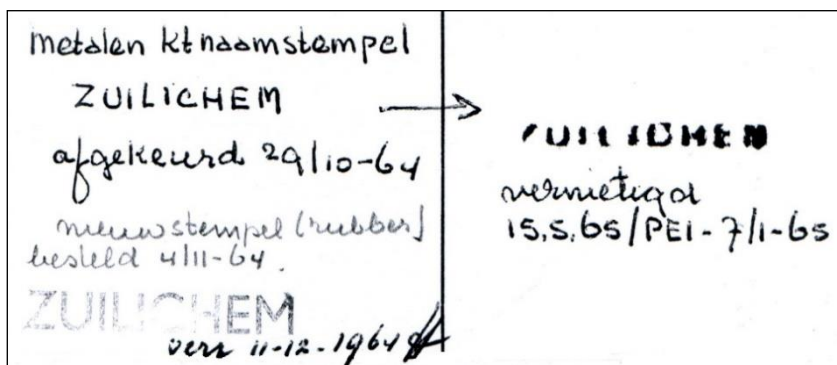 metalen ktnaamstempel
ZUILICHEM
afgekeurd 29/10-64
nieuw stempel (rubber)
besteld 4/11-64.
ZUILICHEM
verz 11-12-1964
ZUILICHEM
vernietigd
15.5.65/PEI-7/1-65